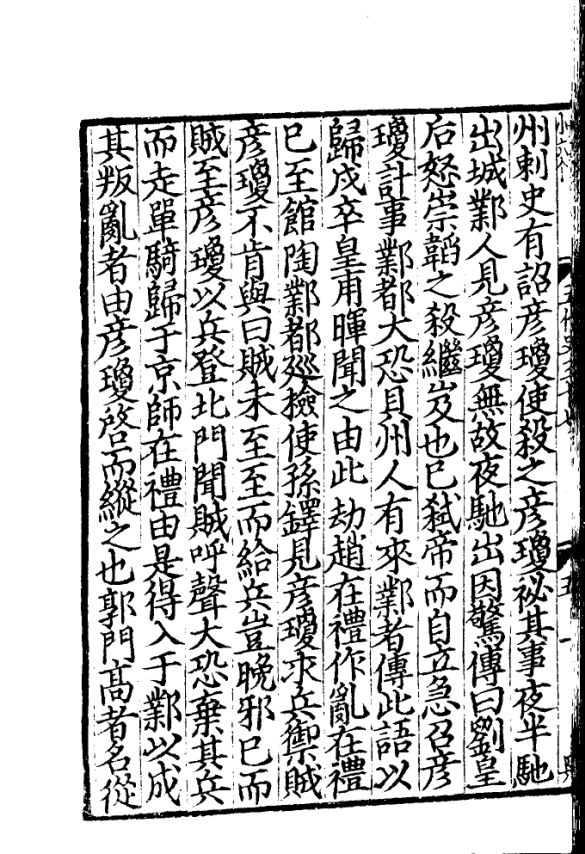 州刺史有詔彦瓊使殺之彦瓊祕其事夜半馳
出城鄴人見彦瓊無故夜馳出因驚傳曰劉皇
后怒崇韜之殺繼岌也已弑帝而自立急召彦
瓊計事鄴都大恐貝州人有來鄴者傳此語以
歸戍卒皇甫暉聞之由此劫趙在禮作亂在禮
已至館陶鄴都廵檢使孫鐸見彦瓊求兵禦賊
彦瓊不肯與曰賊未至至而給兵豈晚邪已而
賊至彦瓊以兵登北門聞賊呼聲大恐棄其兵
而走單騎歸于京師在禮由是得入于鄴以成
其叛亂者由彦瓊啓而縱之也郭門髙者名從